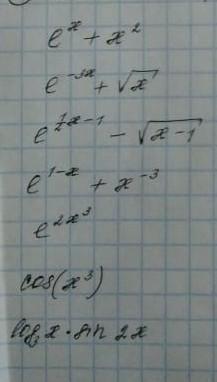 e^x + x^2
e^{-3x} + √x
e^{\frac{1}{2}x-1} - √(x-1)
e^{1-x} + x^{-3}
e^{2x^3}
cos(x^3)
log_3 x · sin 2x